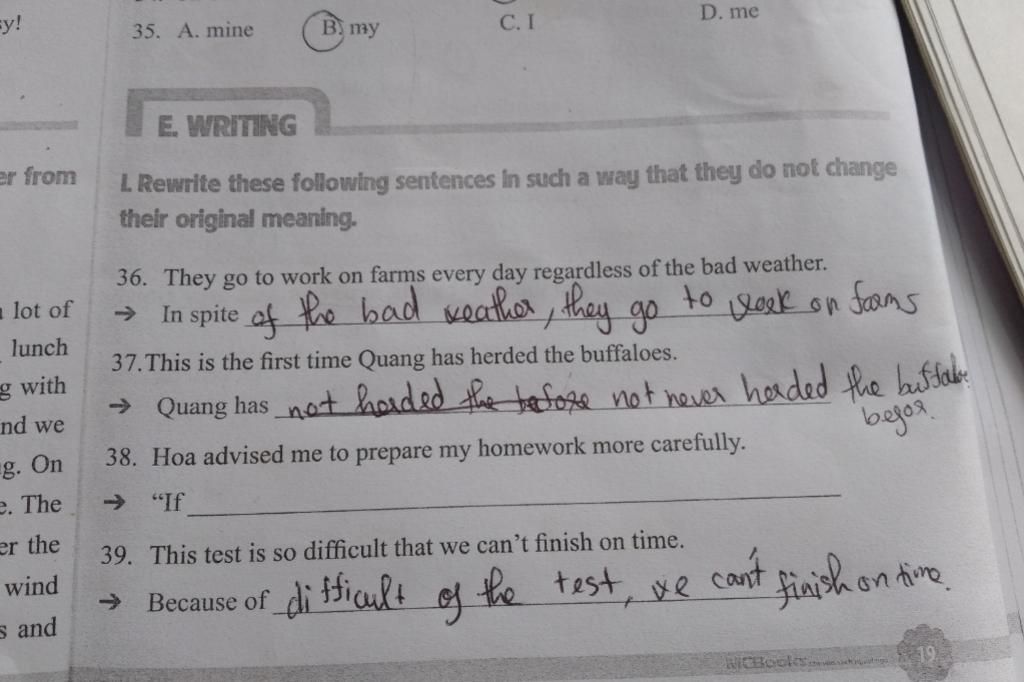 sy!
35. A. mine B. my C. I D. me
E. WRITING
er from
I. Rewrite these following sentences in such a way that they do not change
their original meaning.
36. They go to work on farms every day regardless of the bad weather.
lot of
→ In spite of the bad weather, they go to work on farms
lunch
37. This is the first time Quang has herded the buffaloes.
g with
→ Quang has not herded the before not never herded the buffaloe
begor.
nd we
38. Hoa advised me to prepare my homework more carefully.
g. On
→ "If
e. The
39. This test is so difficult that we can't finish on time.
er the
wind
→ Because of difficult of the test, we can't finish on time.
s and
MCBooks
19